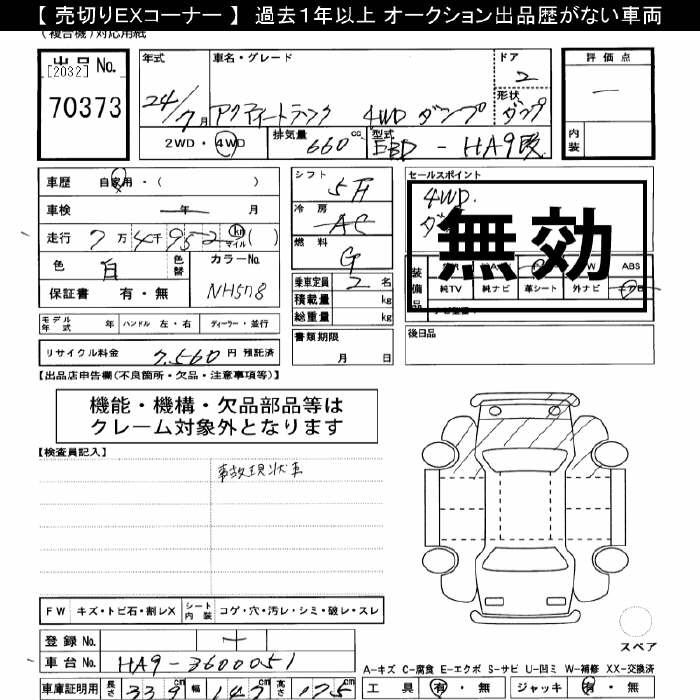 【 売切りEXコーナー 】 過去１年以上 オークション出品歴がない車両
(複合機)対応用紙
出品 No.
[2032]
70373
年式
24/7月
車名・グレード
アクティートラック 4WD ダンプ
ドア
2
形状
ダンプ
2WD・4WD
排気量
660 cc
型式
EBD - HA9改
評価点
—
内装
車歴 自家用・( )
車検 年 月
走行 7万4千952 km マイル ( )
色 白
色替
カラーNo.
NH578
保証書 有・無
シフト
5F
冷房
AC
燃料
G
乗車定員 2 名
積載量 kg
総重量 kg
セールスポイント
4WD.
無効
装備品
ABS
純TV 純ナビ 革シート 外ナビ
モデル年式 年 ハンドル 左・右 ディーラー・並行
リサイクル料金 7,560 円 預託済
書類期限
月 日
後日品
【出品店申告欄(不良箇所・欠品・注意事項等)】
機能・機構・欠品部品等は
クレーム対象外となります
【検査員記入】
事故現状車
FW キズ・トビ石・割レX シート内装 コゲ・穴・汚レ・シミ・破レ・スレ
登録 No.
車台 No. HA9-3600051
車庫証明用 長さ 339 cm 幅 147 cm 高さ 175 cm
スペア
A-キズ C-腐食 E-エクボ S-サビ U-凹ミ W-補修 XX-交換済
工具 有・無 ジャッキ 有・無